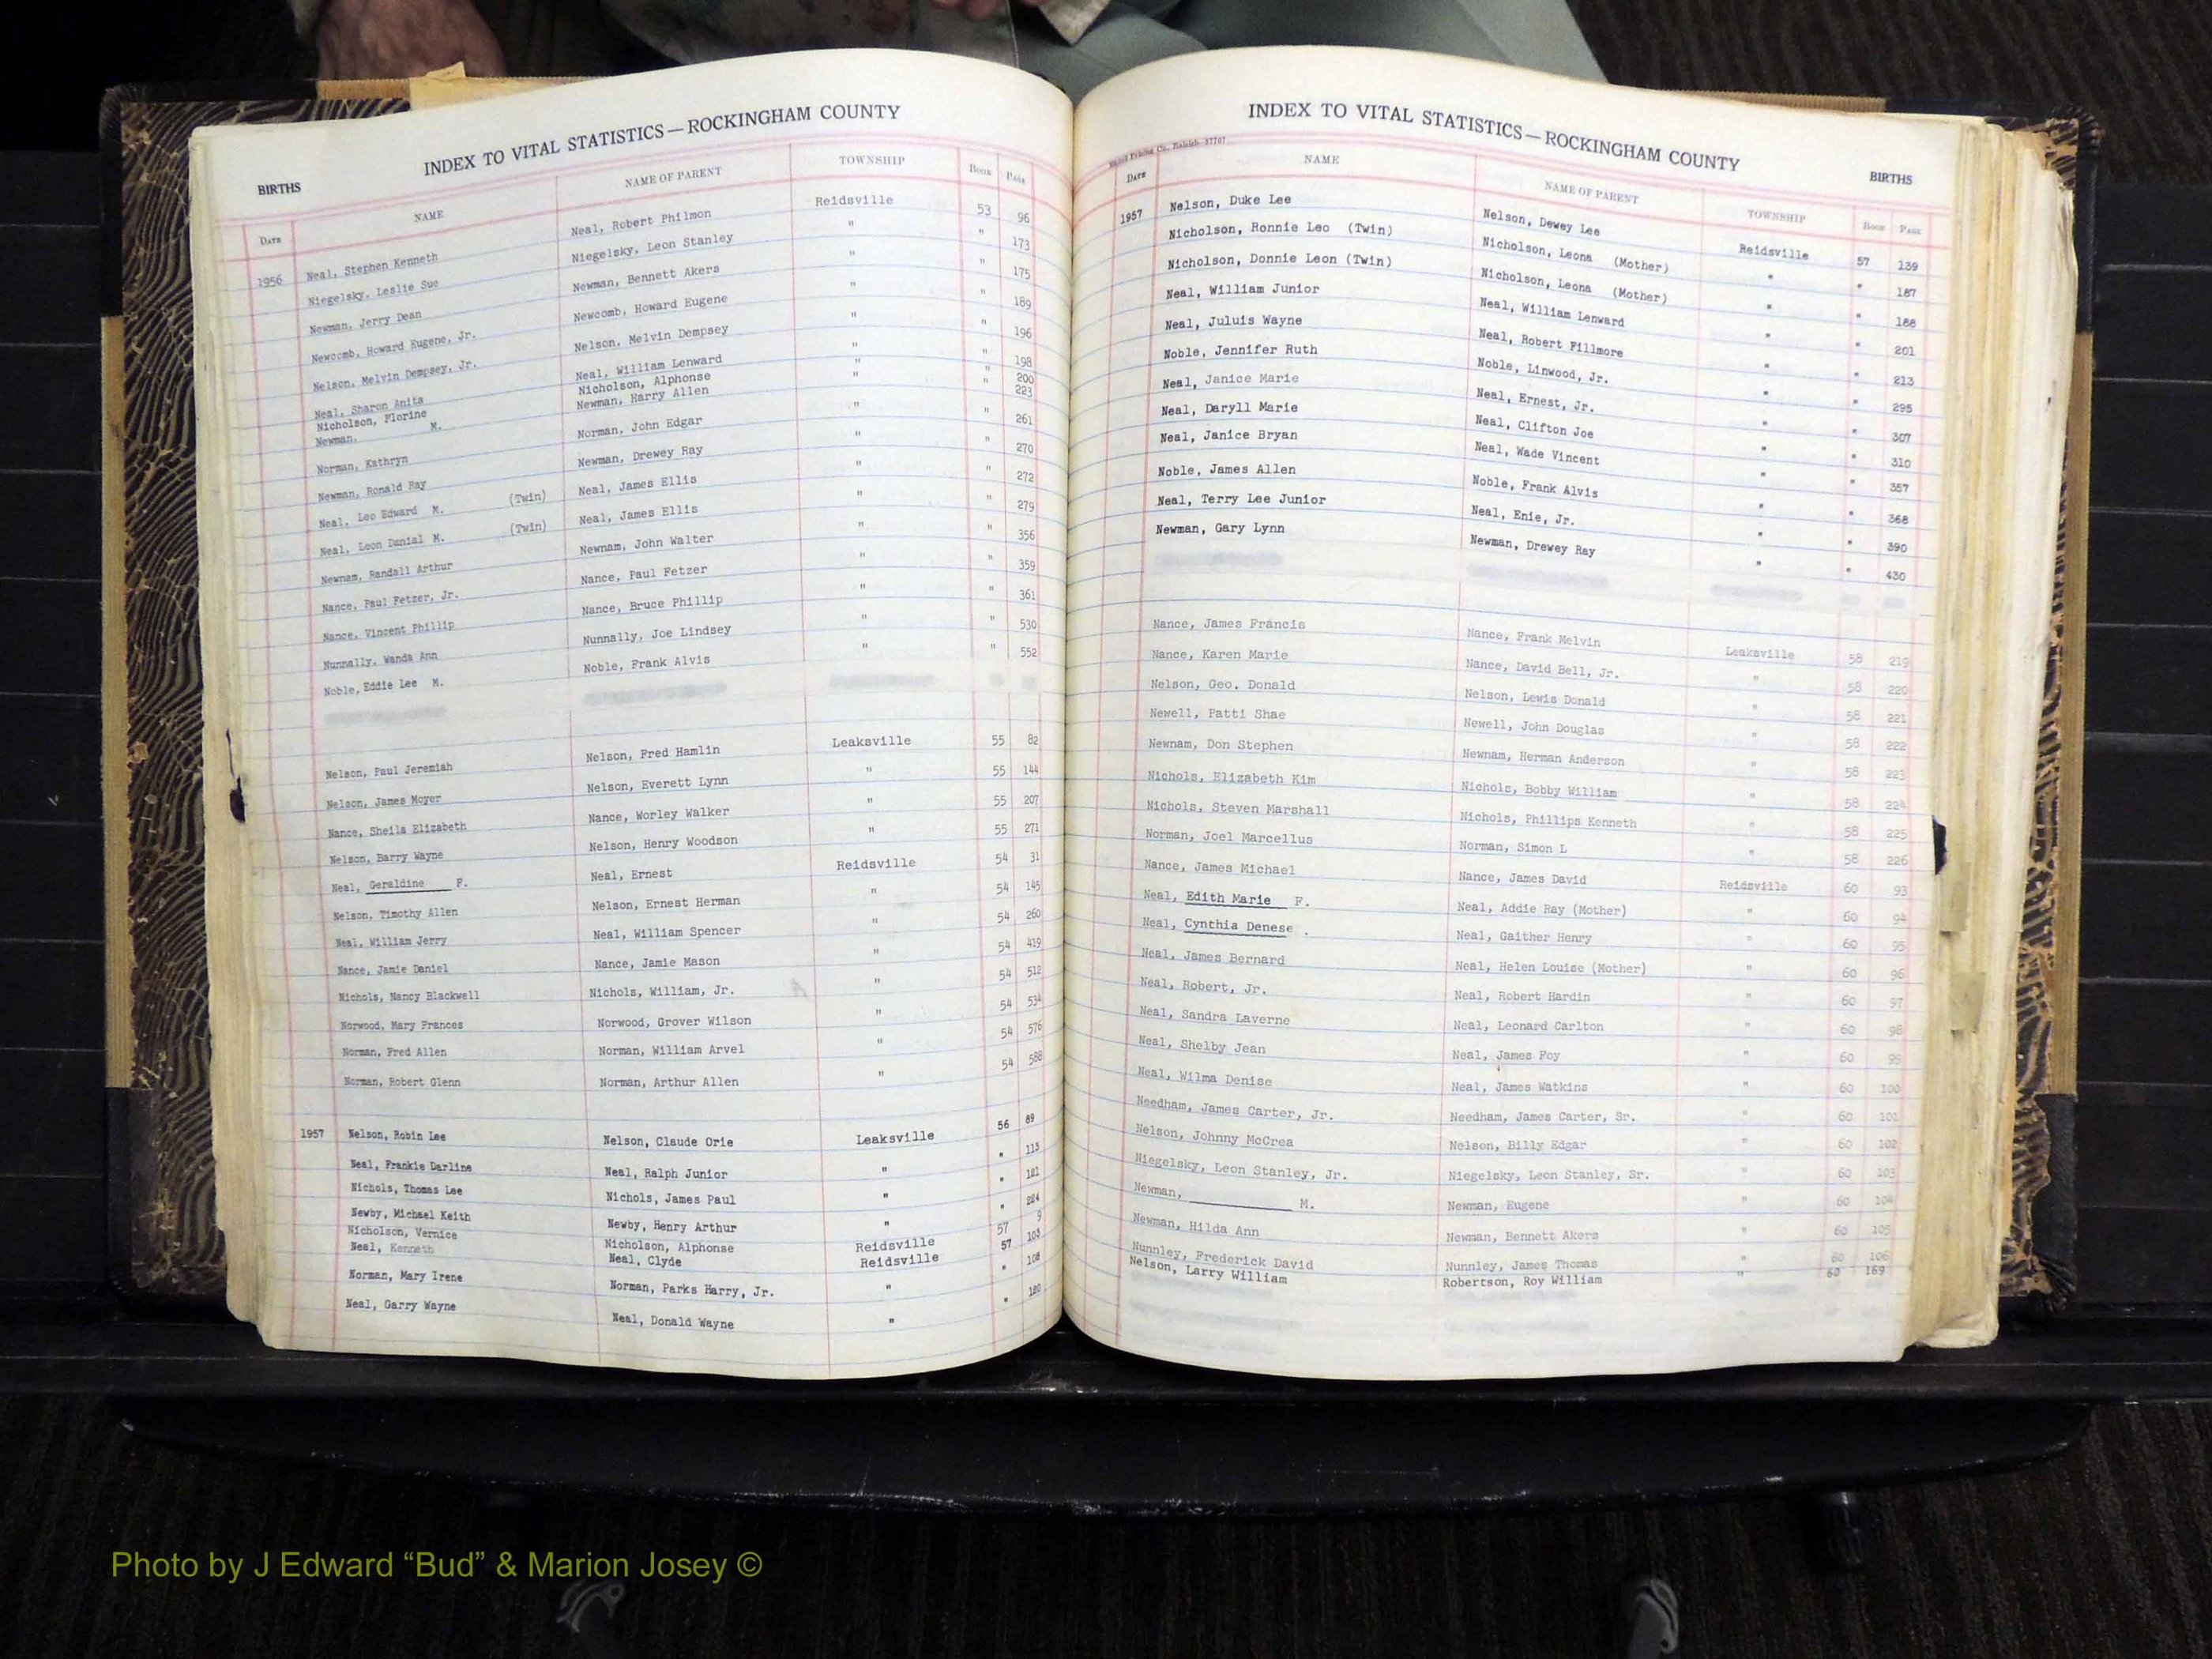 INDEX TO VITAL STATISTICS — ROCKINGHAM COUNTY
BIRTHS
DATE NAME NAME OF PARENT TOWNSHIP BOOK PAGE
1956 Neal, Stephen Kenneth Neal, Robert Philmon Reidsville 53 96
Niegelsky, Leslie Sue Niegelsky, Leon Stanley " " 173
Newman, Jerry Dean Newman, Bennett Akers " " 175
Newcomb, Howard Eugene, Jr. Newcomb, Howard Eugene " " 189
Nelson, Melvin Dempsey, Jr. Nelson, Melvin Dempsey " " 196
Neal, Sharon Anita Neal, William Lenward " " 198
Nicholson, Florine Nicholson, Alphonse " " 200
Newman, M. Newman, Harry Allen " " 223
Norman, Kathryn Norman, John Edgar " " 261
Newman, Ronald Ray Newman, Drewey Ray " " 270
Neal, Leo Edward M. (Twin) Neal, James Ellis " " 272
Neal, Leon Danial M. (Twin) Neal, James Ellis " " 279
Newnam, Randall Arthur Newnam, John Walter " " 356
Nance, Paul Fetzer, Jr. Nance, Paul Fetzer " " 359
Nance, Vincent Phillip Nance, Bruce Phillip " " 361
Nunnally, Wanda Ann Nunnally, Joe Lindsey " " 530
Noble, Eddie Lee M. Noble, Frank Alvis " " 552
Nelson, Paul Jeremiah Nelson, Fred Hamlin Leaksville 55 82
Nelson, James Moyer Nelson, Everett Lynn " 55 144
Nance, Sheila Elizabeth Nance, Worley Walker " 55 207
Nelson, Barry Wayne Nelson, Henry Woodson " 55 271
Neal, Geraldine F. Neal, Ernest Reidsville 54 31
Nelson, Timothy Allen Nelson, Ernest Herman " 54 145
Neal, William Jerry Neal, William Spencer " 54 260
Nance, Jamie Daniel Nance, Jamie Mason " 54 419
Nichols, Nancy Blackwell Nichols, William, Jr. " 54 512
Norwood, Mary Frances Norwood, Grover Wilson " 54 534
Norman, Fred Allen Norman, William Arvel " 54 576
Norman, Robert Glenn Norman, Arthur Allen " 54 588
1957 Nelson, Robin Lee Nelson, Claude Orie Leaksville 56 89
Neal, Frankie Darline Neal, Ralph Junior " " 113
Nichols, Thomas Lee Nichols, James Paul " " 121
Newby, Michael Keith Newby, Henry Arthur " " 224
Nicholson, Vernice Nicholson, Alphonse Reidsville 57 9
Neal, Kenneth Neal, Clyde Reidsville 57 103
Norman, Mary Irene Norman, Parks Harry, Jr. " " 108
Neal, Garry Wayne Neal, Donald Wayne " " 120
INDEX TO VITAL STATISTICS — ROCKINGHAM COUNTY
BIRTHS
DATE NAME NAME OF PARENT TOWNSHIP BOOK PAGE
1957 Nelson, Duke Lee Nelson, Dewey Lee Reidsville 57 139
Nicholson, Ronnie Leo (Twin) Nicholson, Leona (Mother) " " 187
Nicholson, Donnie Leon (Twin) Nicholson, Leona (Mother) " " 188
Neal, William Junior Neal, William Lenward " " 201
Neal, Juluis Wayne Neal, Robert Fillmore " " 213
Noble, Jennifer Ruth Noble, Linwood, Jr. " " 295
Neal, Janice Marie Neal, Ernest, Jr. " " 307
Neal, Daryll Marie Neal, Clifton Joe " " 310
Neal, Janice Bryan Neal, Wade Vincent " " 357
Noble, James Allen Noble, Frank Alvis " " 368
Neal, Terry Lee Junior Neal, Enie, Jr. " " 390
Newman, Gary Lynn Newman, Drewey Ray " " 430
Nance, James Francis Nance, Frank Melvin Leaksville 58 219
Nance, Karen Marie Nance, David Bell, Jr. " 58 220
Nelson, Geo. Donald Nelson, Lewis Donald " 58 221
Newell, Patti Shae Newell, John Douglas " 58 222
Newnam, Don Stephen Newnam, Herman Anderson " 58 223
Nichols, Elizabeth Kim Nichols, Bobby William " 58 224
Nichols, Steven Marshall Nichols, Phillips Kenneth " 58 225
Norman, Joel Marcellus Norman, Simon L " 58 226
Nance, James Michael Nance, James David Reidsville 60 93
Neal, Edith Marie F. Neal, Addie Ray (Mother) " 60 94
Neal, Cynthia Denese . Neal, Gaither Henry " 60 95
Neal, James Bernard Neal, Helen Louise (Mother) " 60 96
Neal, Robert, Jr. Neal, Robert Hardin " 60 97
Neal, Sandra Laverne Neal, Leonard Carlton " 60 98
Neal, Shelby Jean Neal, James Foy " 60 99
Neal, Wilma Denise Neal, James Watkins " 60 100
Needham, James Carter, Jr. Needham, James Carter, Sr. " 60 101
Nelson, Johnny McCrea Nelson, Billy Edgar " 60 102
Niegelsky, Leon Stanley, Jr. Niegelsky, Leon Stanley, Sr. " 60 103
Newman, M. Newman, Eugene " 60 104
Newman, Hilda Ann Newman, Bennett Akers " 60 105
Nunnley, Frederick David Nunnley, James Thomas " 60 106
Nelson, Larry William Robertson, Roy William " 60 169
Photo by J Edward “Bud” & Marion Josey ©